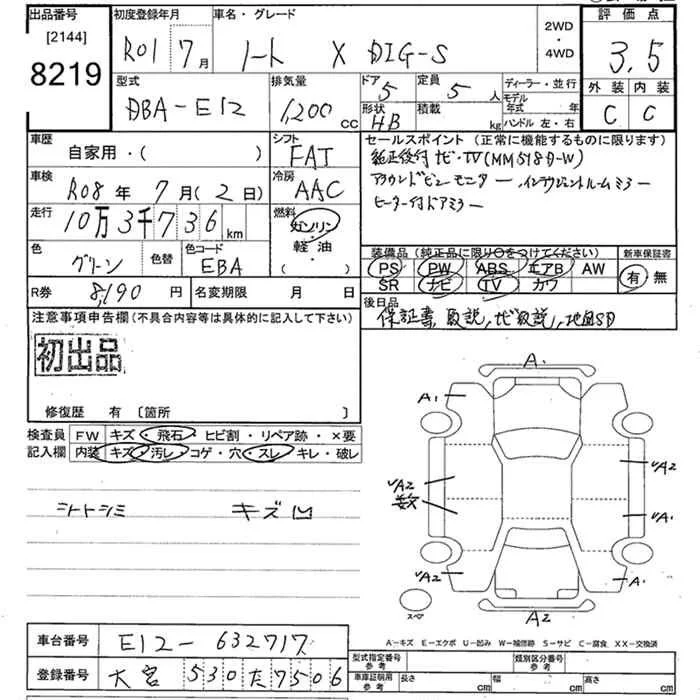 出品番号 初度登録年月 車名・グレード 2WD ・ 4WD 評価点
[2144]
8219 R01 7月 ノート X DIG-S 3.5
外装 内装
C C
型式 排気量 ドア 定員 ディーラー・並行
DBA-E12 1,200cc 5 5人 モデル年式 年
形状 積載
HB kg ハンドル 左・右
車歴 シフト セールスポイント (正常に機能するものに限ります)
自家用・( ) FAT 純正後付ナビ・TV(MM518D-W)
車検 冷房 アラウンドビューモニター インテリジェントルームミラー
R08年7月(2日) AAC ヒーター付ドアミラー
走行 燃料
10万3千736km ガソリン・軽油・( )
色 色替 色コード 装備品 (純正品に限り○をつけてください) 新車保証書
グリーン EBA PS PW ABS エアB AW 有・無
SR ナビ TV カワ
R券 8,190円 名変期限 月 日 後日品
保証書、取説、ナビ取説、地図SD
注意事項申告欄(不具合内容等は具体的に記入して下さい)
初出品
修復歴 有 〔箇所 〕
検査員 FW キズ・飛石・ヒビ割・リペア跡・×要
記入欄 内装 キズ・汚レ・コゲ・穴・スレ・キレ・破レ
シートシミ キズ凹
A・
A1
A2
A2
数
A1
A2
A・
A2
スペア
A-キズ E-エクボ U-凹み W-補修跡 S-サビ C-腐食 XX-交換済
車台番号 E12-632717 型式指定番号 参考 類別区分番号 参考
登録番号 大宮 530 た 7506 車庫証明用 参考 長さ cm 幅 cm 高さ cm